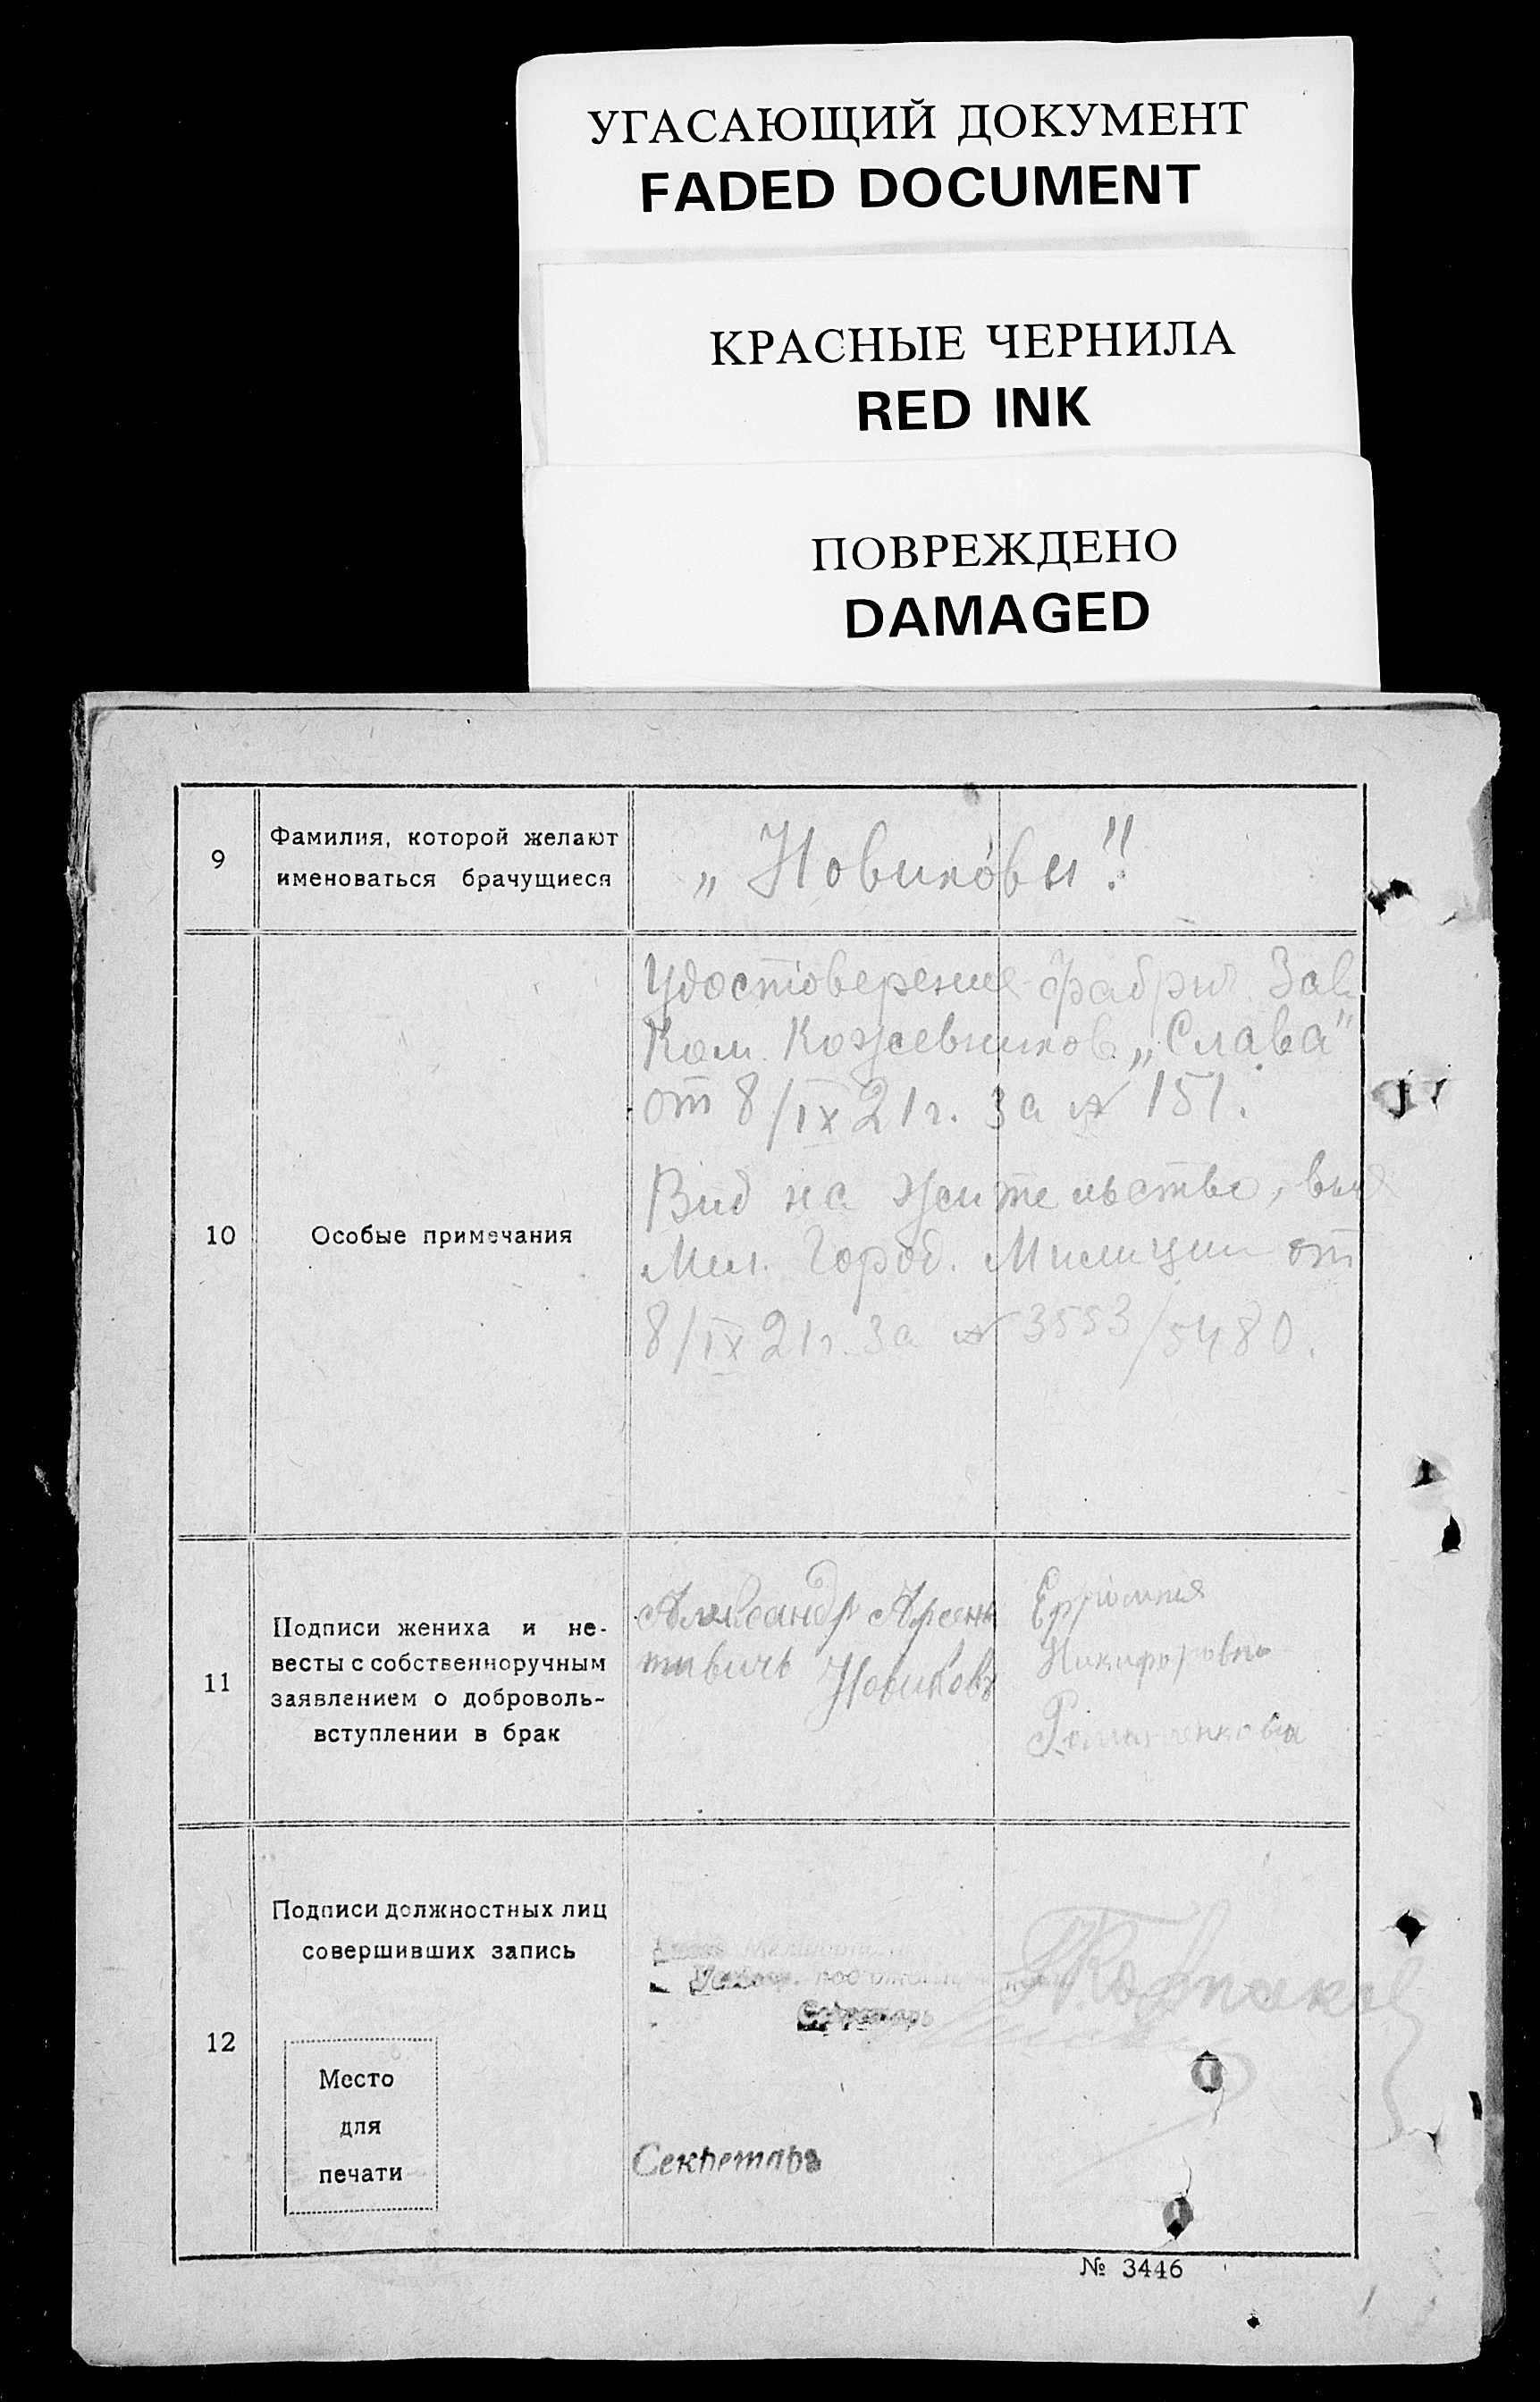 УГАСАЮЩИЙ ДОКУМЕНТ
FADED DOCUMENT
КРАСНЫЕ ЧЕРНИЛА
RED INK
ПОВРЕЖДЕНО
DAMAGED
9
Фамилия, которой желают
именоваться брачущиеся
„Новиковы"
10
Особые примечания
Удостоверение фабрич. Зав.
Ком. Кожевников. „Слава"
от 8/IX 21 г. за № 151.
Вид на жительство, выд
Мел. Город. Милиции от
8/IX 21 г. за № 3553/5480.
11
Подписи жениха и не-
весты с собственноручным
заявлением о доброволь-
вступлении в брак
Александр Арсен
тивичь Новиковъ
Никифоровна
Романенкова
12
Подписи должностных лиц
совершивших запись
Место
для
печати
Секретарь
Секретарь
№ 3446